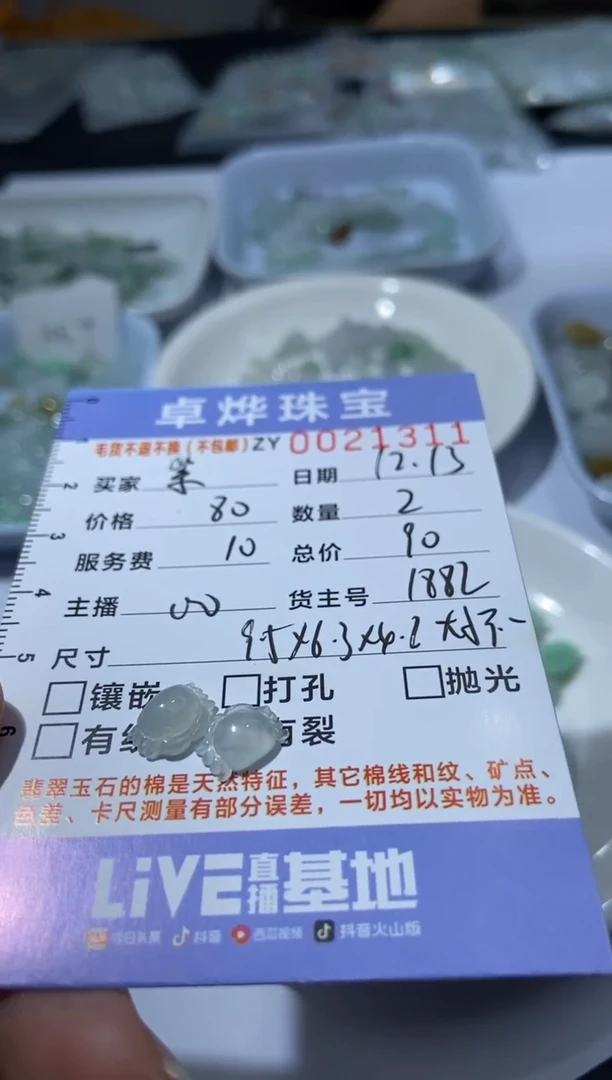 卓烨珠宝
毛货不退不换(不包邮) ZY 0021311
买家 日期 12.13
价格 80 数量 2
服务费 10 总价 90
主播 货主号 1882
尺寸 大小不一
镶嵌 打孔 抛光
有 有裂
翡翠玉石的棉是天然特征,其它棉线和纹、矿点、
色差、卡尺测量有部分误差,一切均以实物为准。
LiVE直播基地
今日头条 抖音 西瓜视频 抖音火山版